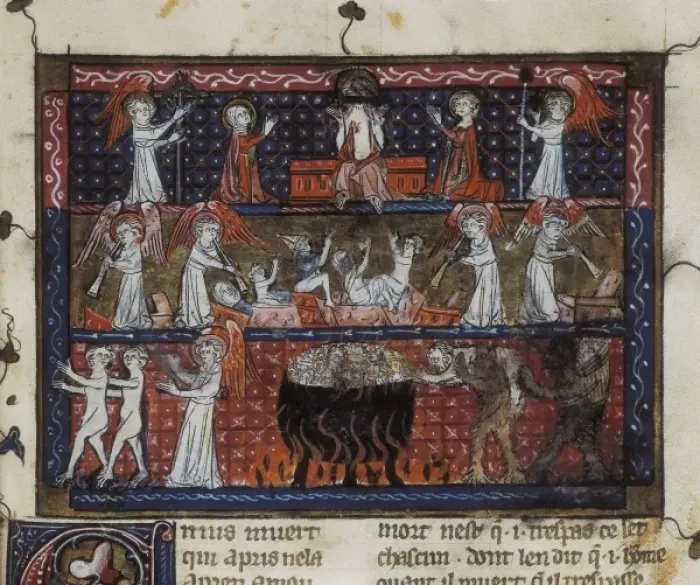 Enuis muert
qui apris nela
Apren amou
mort nest q̃ ·i· trespas ce set
chascun · dont len dit q̃ ·i· home
quant il muert q̃ il trespasse